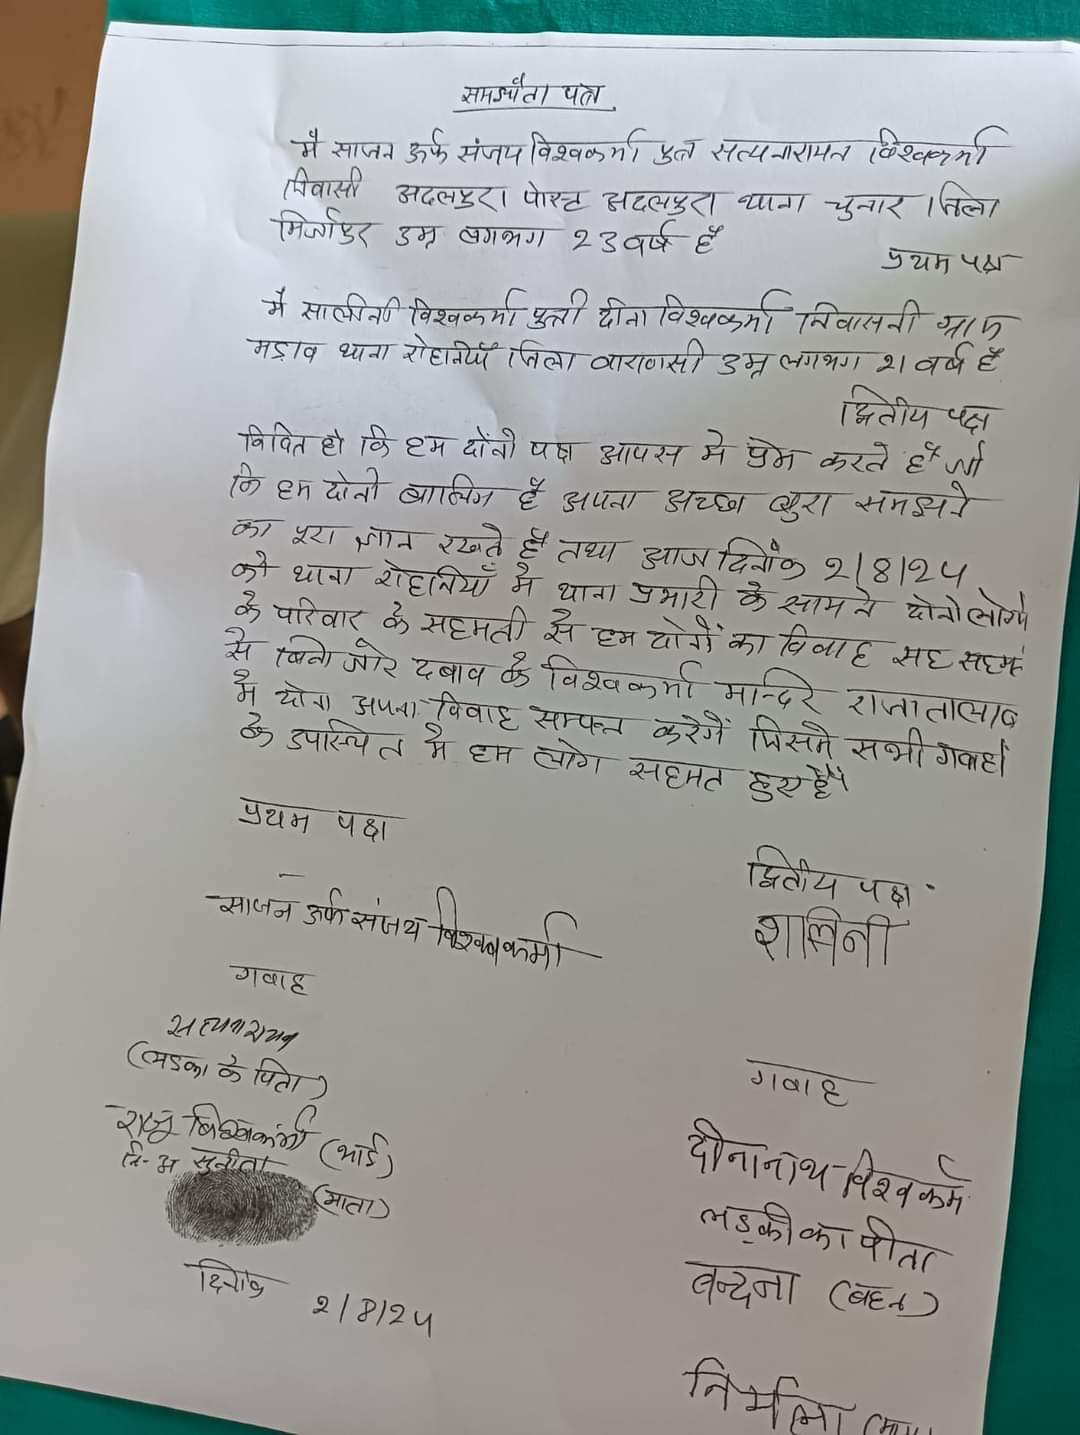 समझौता पत्र
मै साजन उर्फ संजय विश्वकर्मा पुत्र सत्यनारायन विश्वकर्मा
निवासी अदलपुरा पोस्ट अदलपुरा थाना चुनार जिला
मिर्जापुर उम्र लगभग 23 वर्ष है
प्रथम पक्ष
मै सालीनी विश्वकर्मा पुत्री दीना विश्वकर्मा निवासनी ग्राम
मड़ाव थाना रोहनियाँ जिला वाराणसी उम्र लगभग 21 वर्ष है
द्वितीय पक्ष
विदित हो कि हम दोंनो पक्ष आपस मे प्रेम करते है जो
कि हम दोनो बालिग है अपना अच्छा बुरा समझने
का पूरा ज्ञान रखते है तथा आज दिनाँक 2/8/24
को थाना रोहनियाँ मे थाना प्रभारी के सामने दोनो लोगो
के परिवार के सहमती से हम दोनों का विवाह सह सहम
से बिना जोर दबाव के विश्वकर्मा मान्दिर राजातालाब
मे दोनो अपना विवाह सम्पन्न करेगें जिसमे सभी गवाहो
के उपास्थित मे हम लोग सहमत हुए है
प्रथम पक्ष
द्वितीय पक्ष
साजन उर्फ संजय विश्वकर्मा
शालिनी
गवाह
सत्यनारायन
(लडका के पिता)
राजू विश्वकर्मा (भाई)
नि-अ सुनीता
(माता)
दिनांक 2/8/24
गवाह
दीनानाथ विश्वकर्मा
लड़की का पीता
बन्दना (बहन)
निर्मला